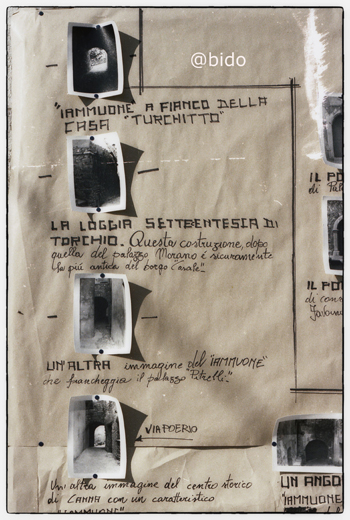 @bido
"IAMMUONE A FIANCO DELLA
CASA "TURCHITTO"
LA LOGGIA SETTENTESCA DI
TORCHIO. Questa costruzione, dopo
quella del palazzo Morano è sicuramente
la più antica del borgo "Casale".
UN'ALTRA immagine del "IAMMUONE"
che fiancheggia il palazzo "Pitrelli".
VIA POERIO
Un'altra immagine del centro storico
di CANNA con un caratteristico
"IAMMUONE"
IL PO
di Pal
IL PO
di con
UN ANGO
"IAMMUONE